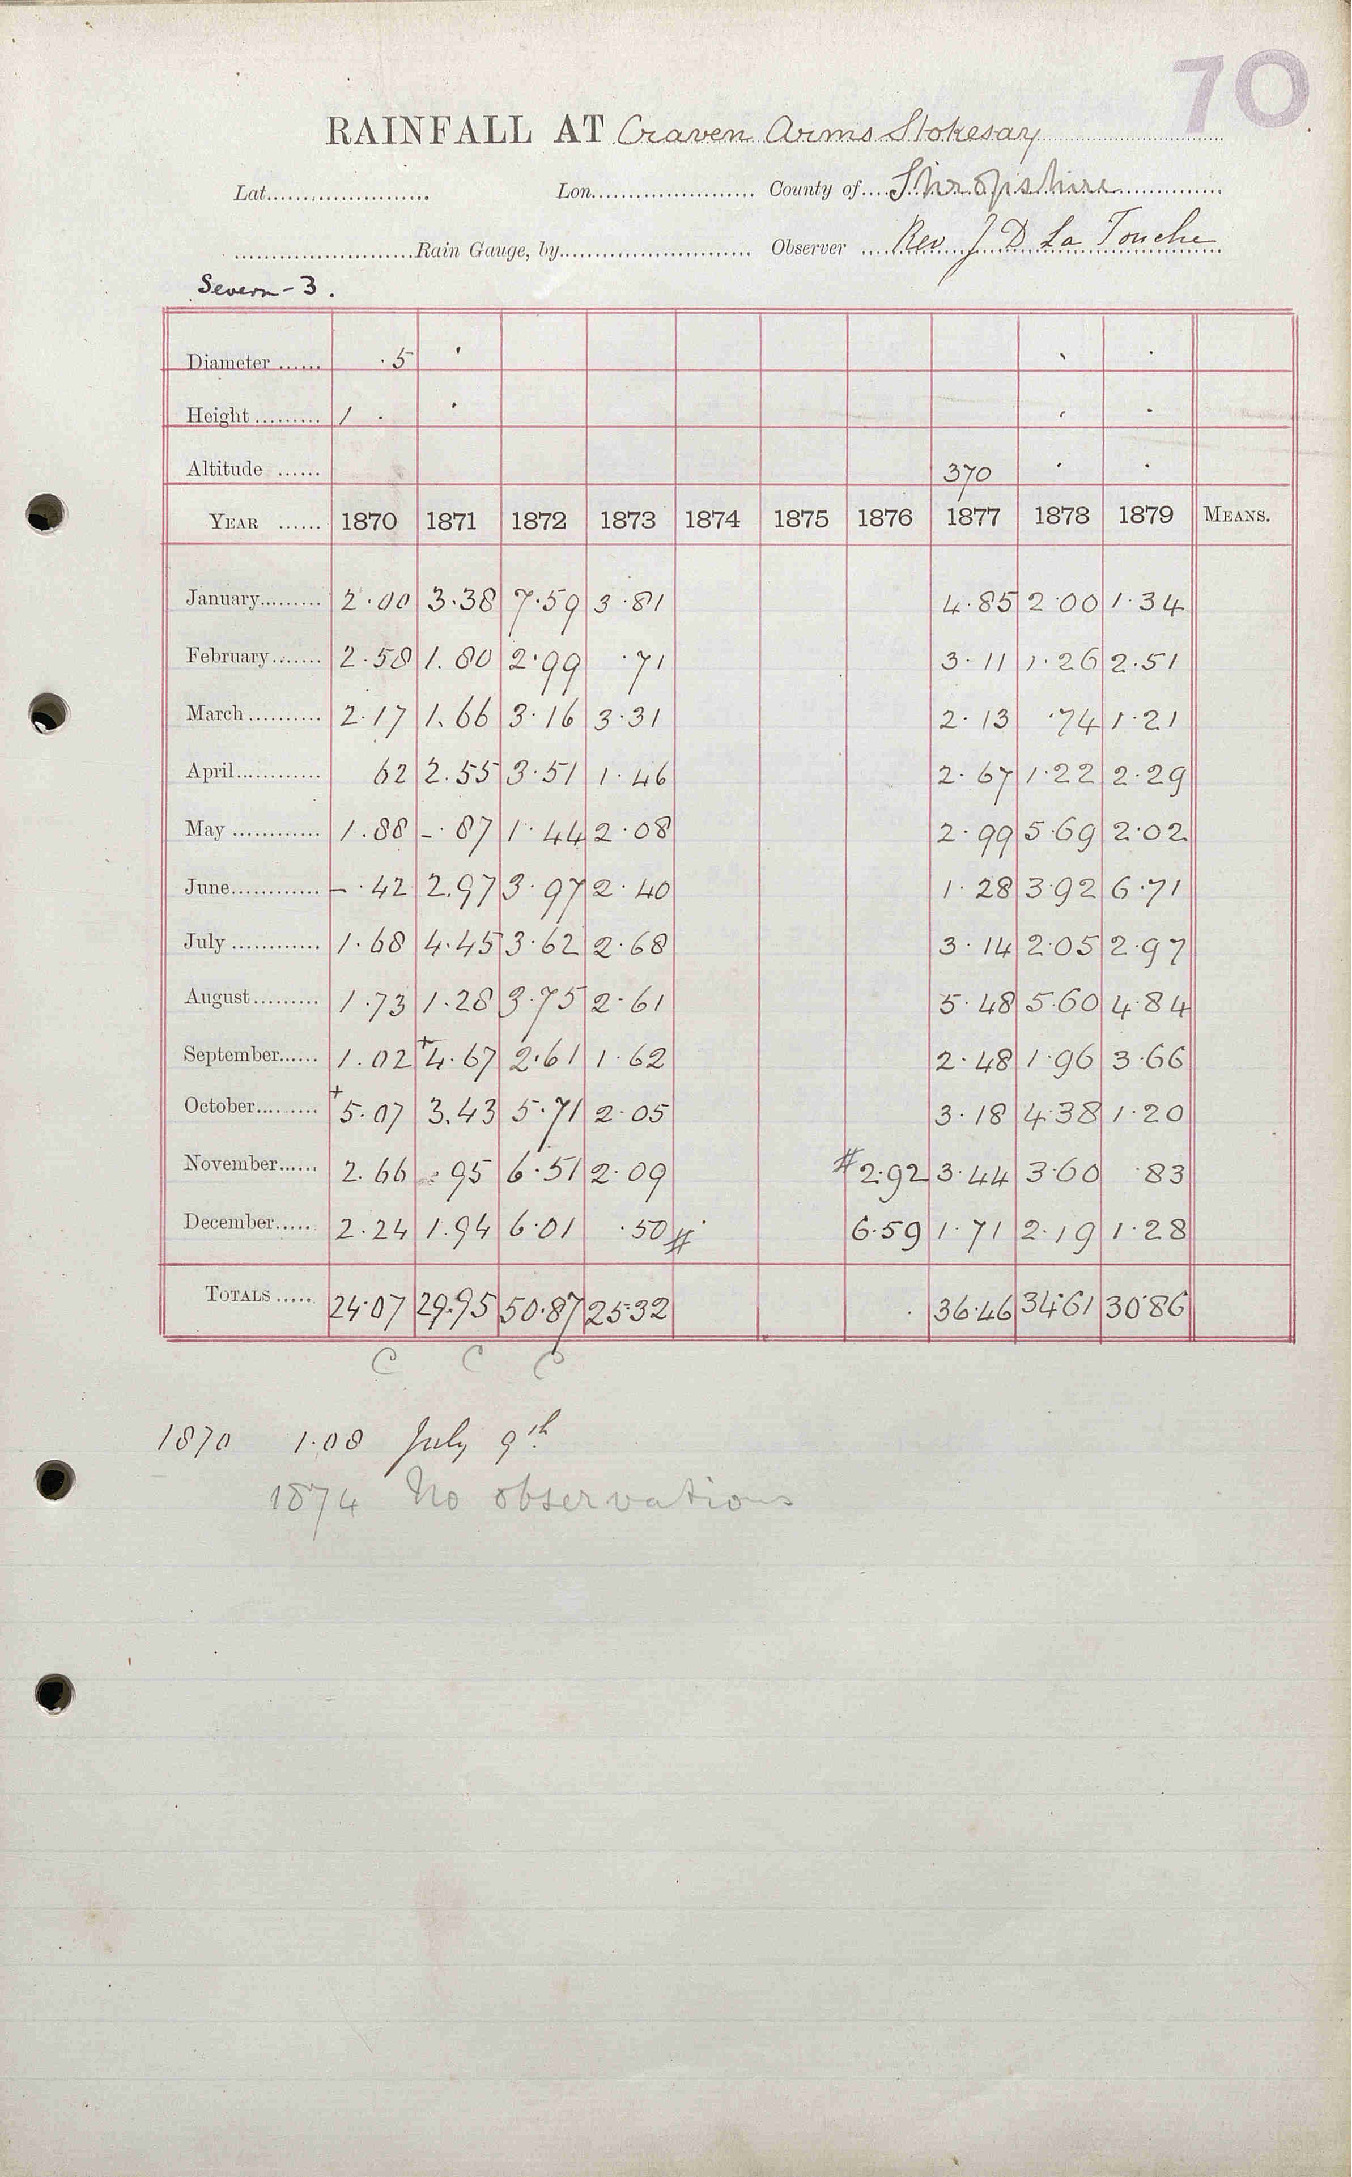 70
RAINFALL AT Craven Arms Stokesay
Lat. Lon. County of Shropshire
Rain Gauge, by Observer Rev J D La Touche
Severn - 3.
Diameter ·5
Height 1 ·
Altitude 370
YEAR 1870 1871 1872 1873 1874 1875 1876 1877 1878 1879 MEANS.
January 2·00 3.38 7·59 3·81 4·85 2·00 1·34
February 2·58 1.80 2·99 ·71 3·11 1·26 2.51
March 2·17 1.66 3·16 3·31 2·13 ·74 1·21
April 62 2.55 3·51 1·46 2·67 1·22 2·29
May 1.88 -·87 1·44 2·08 2·99 5·69 2·02
June -·42 2.97 3·97 2·40 1·28 3·92 6·71
July 1·68 4·45 3·62 2·68 3·14 2·05 2·97
August 1·73 1·28 3·75 2·61 5·48 5·60 4·84
September 1.02 +4·67 2·61 1·62 2·48 1·96 3·66
October +5·07 3.43 5·71 2·05 3·18 4·38 1·20
November 2.66 ·95 6·51 2·09 #2·92 3·44 3·60 ·83
December 2·24 1·94 6·01 ·50 # 6·59 1·71 2·19 1·28
TOTALS 24·07 29·95 50·87 25·32 36·46 34·61 30·86
C C C
1870 1·08 July 9th
1874 No observations